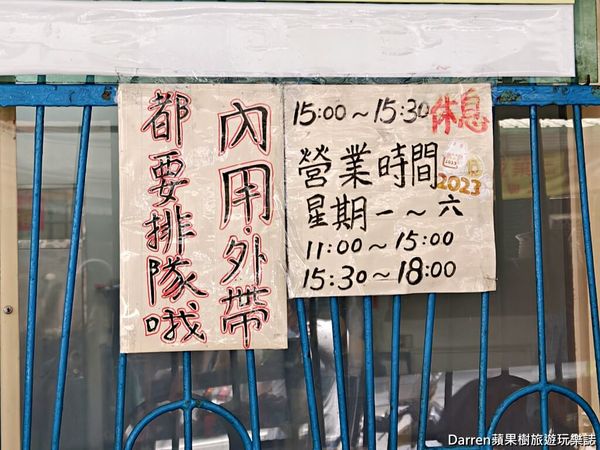 內用·外帶
都要排隊哦
15:00~15:30休息
營業時間
2023
星期一~六
11:00~15:00
15:30~18:00
Darren蘋果樹旅遊玩樂誌